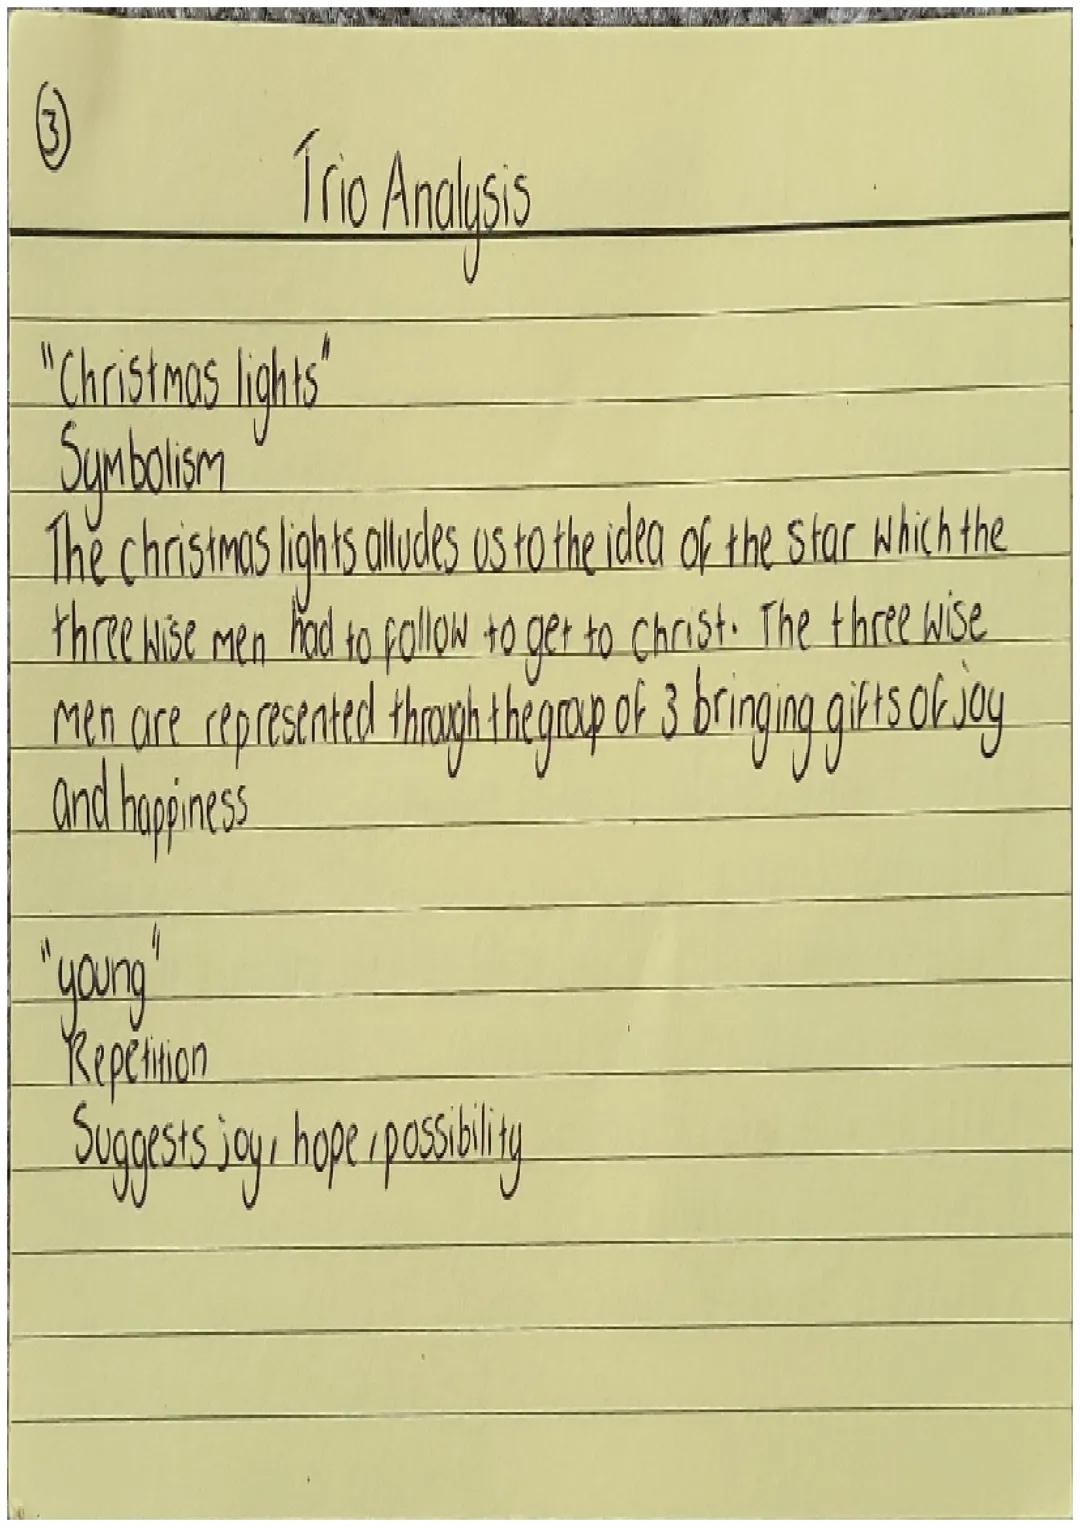 3
Trio Analysis
"Christmas lights"
Symbolism
The christmas lights alludes us to the idea of the star which the
three wise men had to follow to get to christ. The three wise
men are represented through the group of 3 bringing gifts of joy
and happiness
"young"
Repetition
Suggests joy, hope, possibility